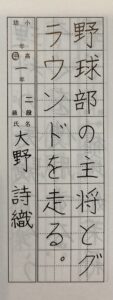 野球部の主将とグ
ラウンドを走る。
小 高
幼 年 中 一年
段級 二段
氏名 大野 詩織